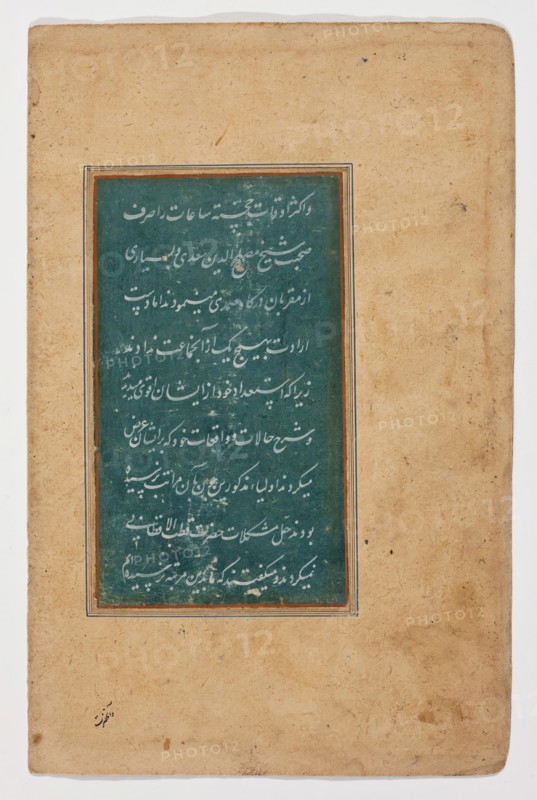 و اکثر اوقات خجسته ساعات را صرف
صحبت شیخ مصلح الدین سعدی و بسیاری
از مقربان درگاه صمدی مینمودند اما دست
ارادت بهیچ یک از آنجماعت ندادند
زیرا که استعداد خود از ایشان اقوی میدیدند
و شرح حالات و واقعات خود که بر ایشان عرض
میکردند اولیاء مذکورین چون بآن مراتب نرسیده
بودند حل مشکلات حضرت قطب الاقطابی
نمیکردند و میگفتند که ما بدین مرتبه نرسیده‌ایم
PHOTO12